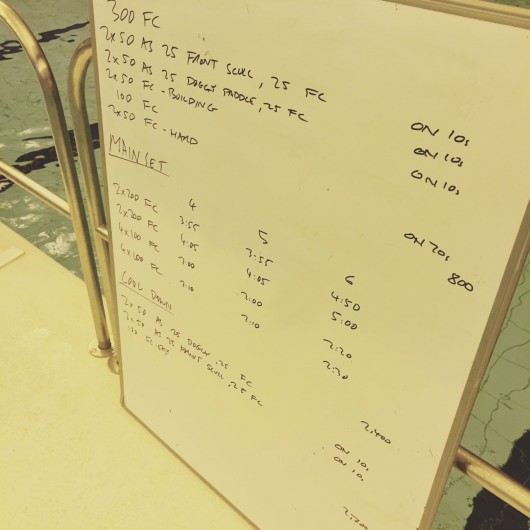 300 FC
2x50 AS 25 FRONT SCULL, 25 FC ON 10s
2x50 AS 25 DOGGY PADDLE, 25 FC ON 10s
2x50 FC - BUILDING ON 10s
100 FC
2x50 FC - HARD ON 20s
800
MAIN SET
4 5 6
2x200 FC 3:55 3:55 4:50
2x200 FC 4:05 4:05 5:00
4x100 FC 2:00 2:00 2:20
4x100 FC 2:10 2:10 2:30
2,400
COOL DOWN
2x50 AS 25 DOGGY, 25 FC ON 10s
2x50 AS 25 FRONT SCULL, 25 FC ON 10s
100 FC